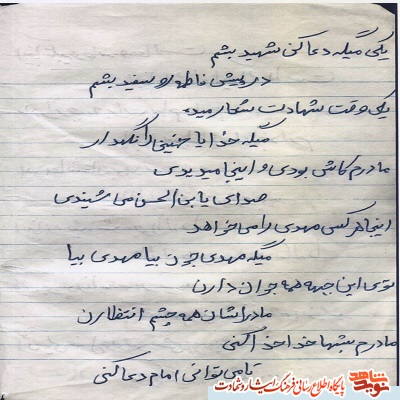 یکی میگه دعا کنی شهید بشم
در پیش فاطمه رو سفید بشم
یک وقت شهادت شعار میده
میگه خدایا خمینی را نگهدار
مادرم کاش بودی و اینجا میدیدی
صدای یابن الحسن می شنیدی
اینجا هر کسی مهدی را می خواهد
میگه مهدی جون بیا مهدی بیا
توی این جبهه همه جوان دارن
مادراشان همه چشم انتظارن
مادرم بشها خدا خدا کنی
تا می توانی امام دعا کنی
نوید شاهد
پایگاه اطلاع رسانی فرهنگ ایثار و شهادت